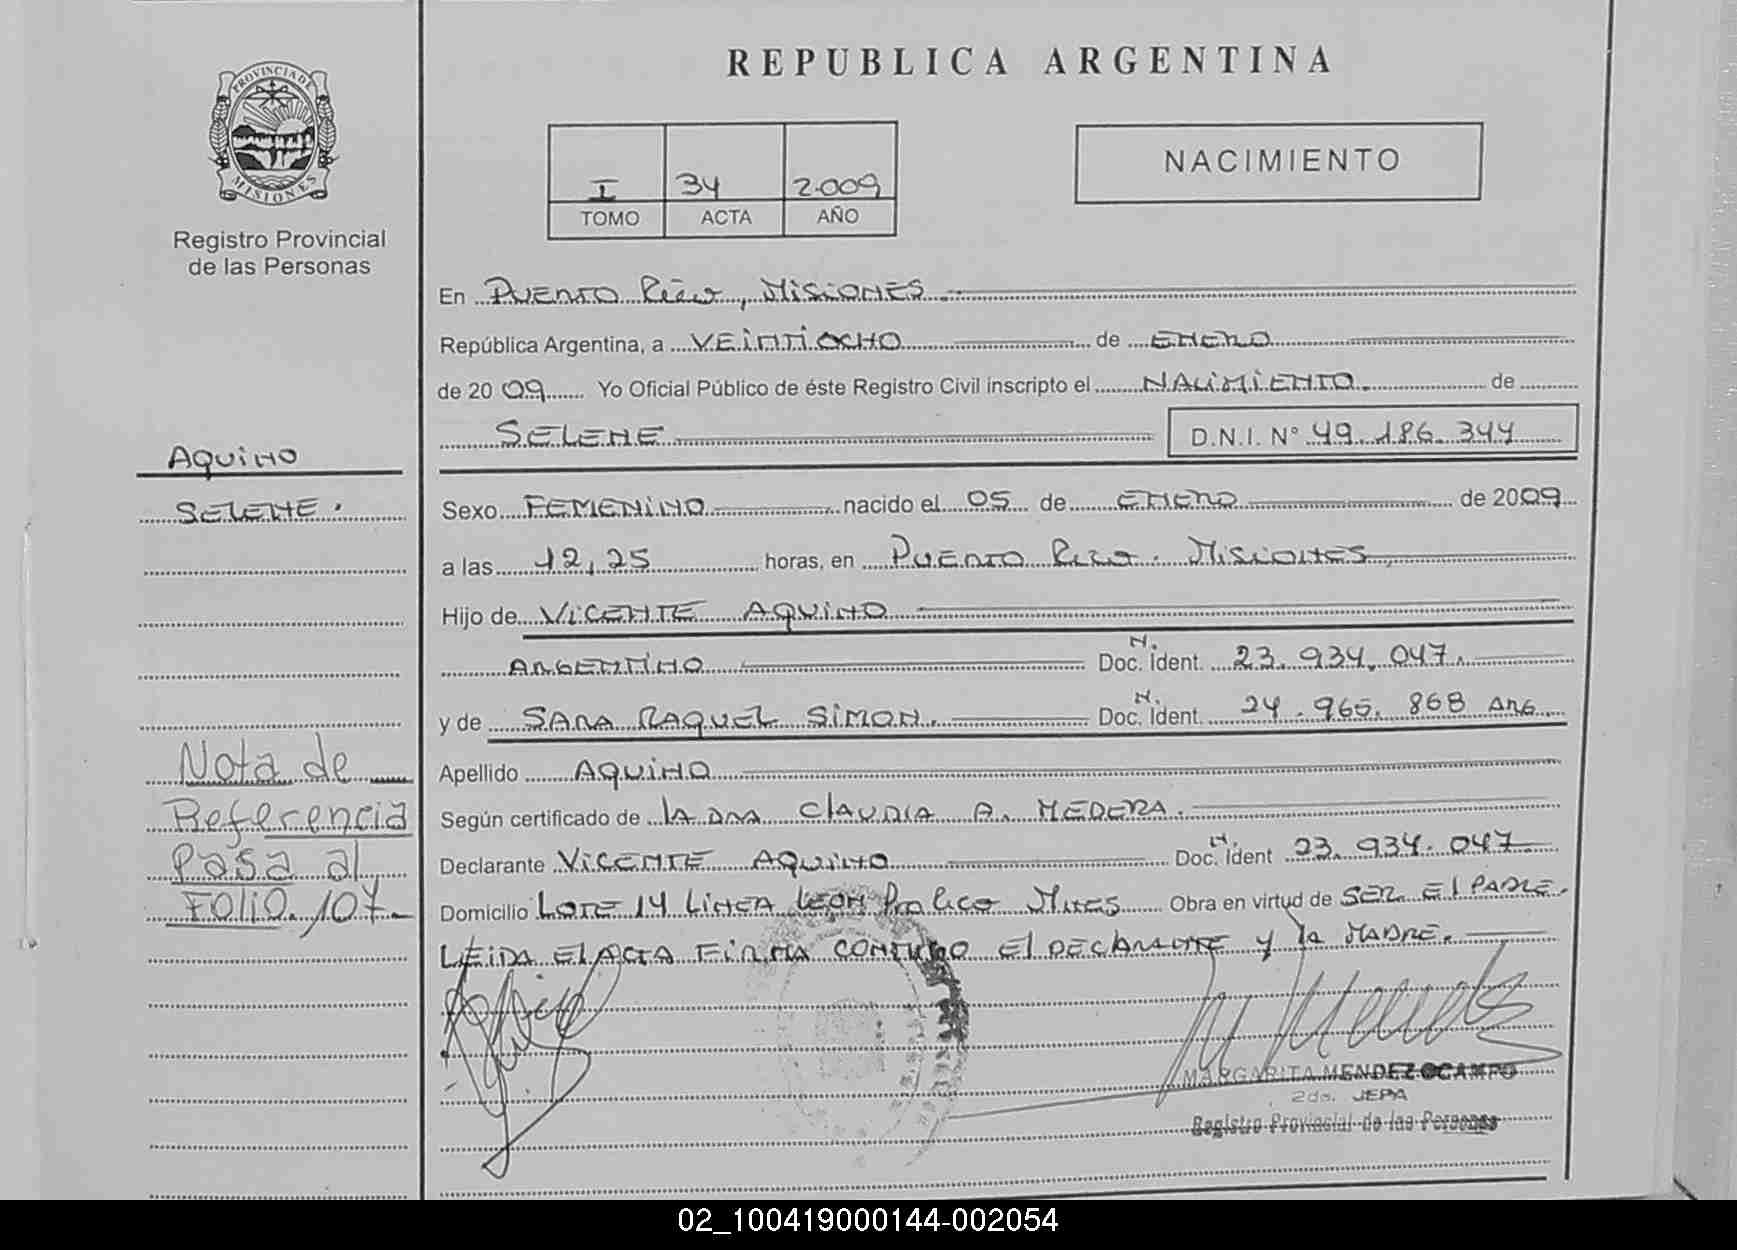 REPUBLICA ARGENTINA
PROVINCIA DE
MISIONES
Registro Provincial
de las Personas
I 34 2.009
TOMO ACTA AÑO
NACIMIENTO
En PUERTO Rico, MISIONES.
República Argentina, a VEINTIOCHO de ENERO
de 2009 Yo Oficial Público de éste Registro Civil inscripto el NACIMIENTO. de
SELENE D.N.I. N° 49.186.344
AQUINO
SELENE.
Sexo FEMENINO nacido el 05 de ENERO de 2009
a las 12,25 horas, en PUERTO Rico. MISIONES
Hijo de VICENTE AQUINO
ARGENTINO N. Doc. Ident. 23.934.047.
y de SARA RAQUEL SIMON. N. Doc. Ident. 24.965.868 ARG
Nota de
Referencia
Pasa al
FOLIO 107
Apellido AQUINO
Según certificado de la DRA CLAUDIA A. MEDERA.
Declarante VICENTE AQUINO N. Doc. Ident 23.934.047.
Domicilio LOTE 14 LINEA LEON Pto Rico Mnes Obra en virtud de SER El PADRE.
LEIDA El ACTA FIRMA CONMIGO El DECLARANTE y la MADRE.
MARGARITA MENDEZ OCAMPO
2da. JEFA
Registro Provincial de las Personas
02_100419000144-002054